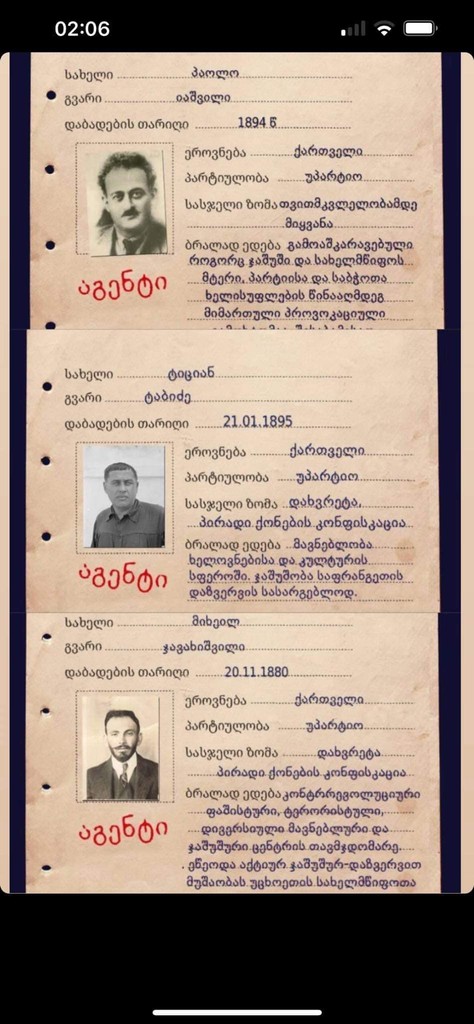 02:06
სახელი პაოლო
გვარი იაშვილი
დაბადების თარიღი 1894 წ
ეროვნება ქართველი
პარტიულობა უპარტიო
სასჯელი ზომა თვითმკვლელობამდე
მიყვანა
ბრალად ედება გამოაშკარავებული
როგორც ჯაშუში და სახელმწიფოს
მტერი, პარტიისა და საბჭოთა
ხელისუფლების წინააღმდეგ
მიმართული პროვოკაციული
აგენტი
სახელი ტიციან
გვარი ტაბიძე
დაბადების თარიღი 21.01.1895
ეროვნება ქართველი
პარტიულობა უპარტიო
სასჯელი ზომა დახვრეტა,
პირადი ქონების კონფისკაცია
ბრალად ედება მავნებლობა
ხელოვნებისა და კულტურის
სფეროში. ჯაშუშობა საფრანგეთის
დაზვერვის სასარგებლოდ.
აგენტი
სახელი მიხეილ
გვარი ჯავახიშვილი
დაბადების თარიღი 20.11.1880
ეროვნება ქართველი
პარტიულობა უპარტიო
სასჯელი ზომა დახვრეტა
პირადი ქონების კონფისკაცია
ბრალად ედება კონტრრევოლუციური
ფაშისტური, ტერორისტული,
დივერსიული მავნებლური და
ჯაშუშური ცენტრის თავმჯდომარე.
. ეწეოდა აქტიურ ჯაშუშურ-დაზვერვით
მუშაობას უცხოეთის სახელმწიფოთა
აგენტი